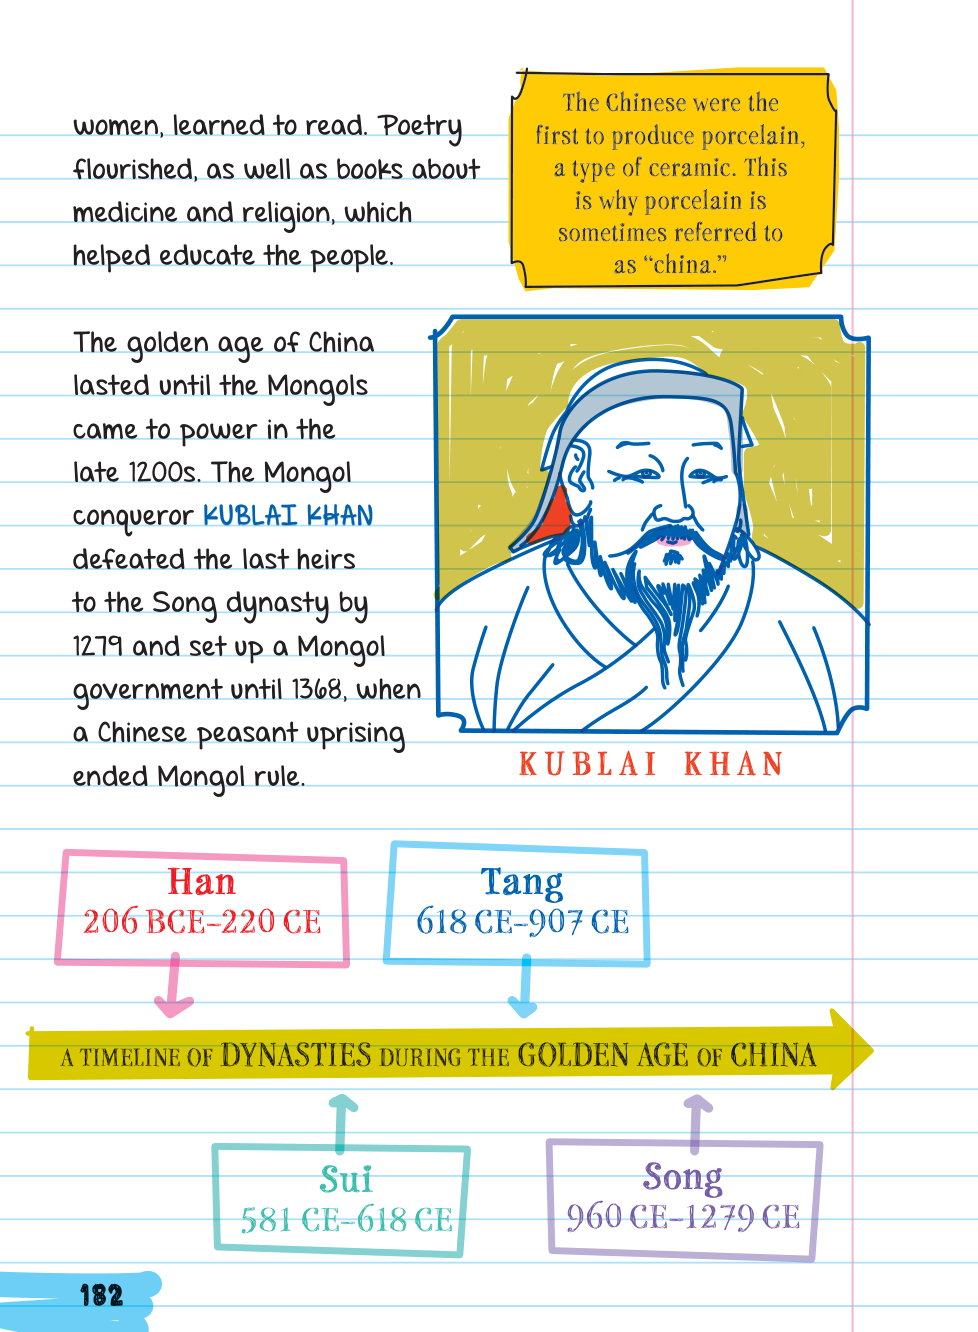 women, learned to read. Poetry
flourished, as well as books about
medicine and religion, which
helped educate the people.
The Chinese were the
first to produce porcelain,
a type of ceramic. This
is why porcelain is
sometimes referred to
as “china.”
The golden age of China
lasted until the Mongols
came to power in the
late 1200s. The Mongol
conqueror KUBLAI KHAN
defeated the last heirs
to the Song dynasty by
1279 and set up a Mongol
government until 1368, when
a Chinese peasant uprising
ended Mongol rule.
KUBLAI KHAN
Han
206 BCE–220 CE
Tang
618 CE–907 CE
A TIMELINE OF DYNASTIES DURING THE GOLDEN AGE OF CHINA
Sui
581 CE–618 CE
Song
960 CE–1279 CE
182